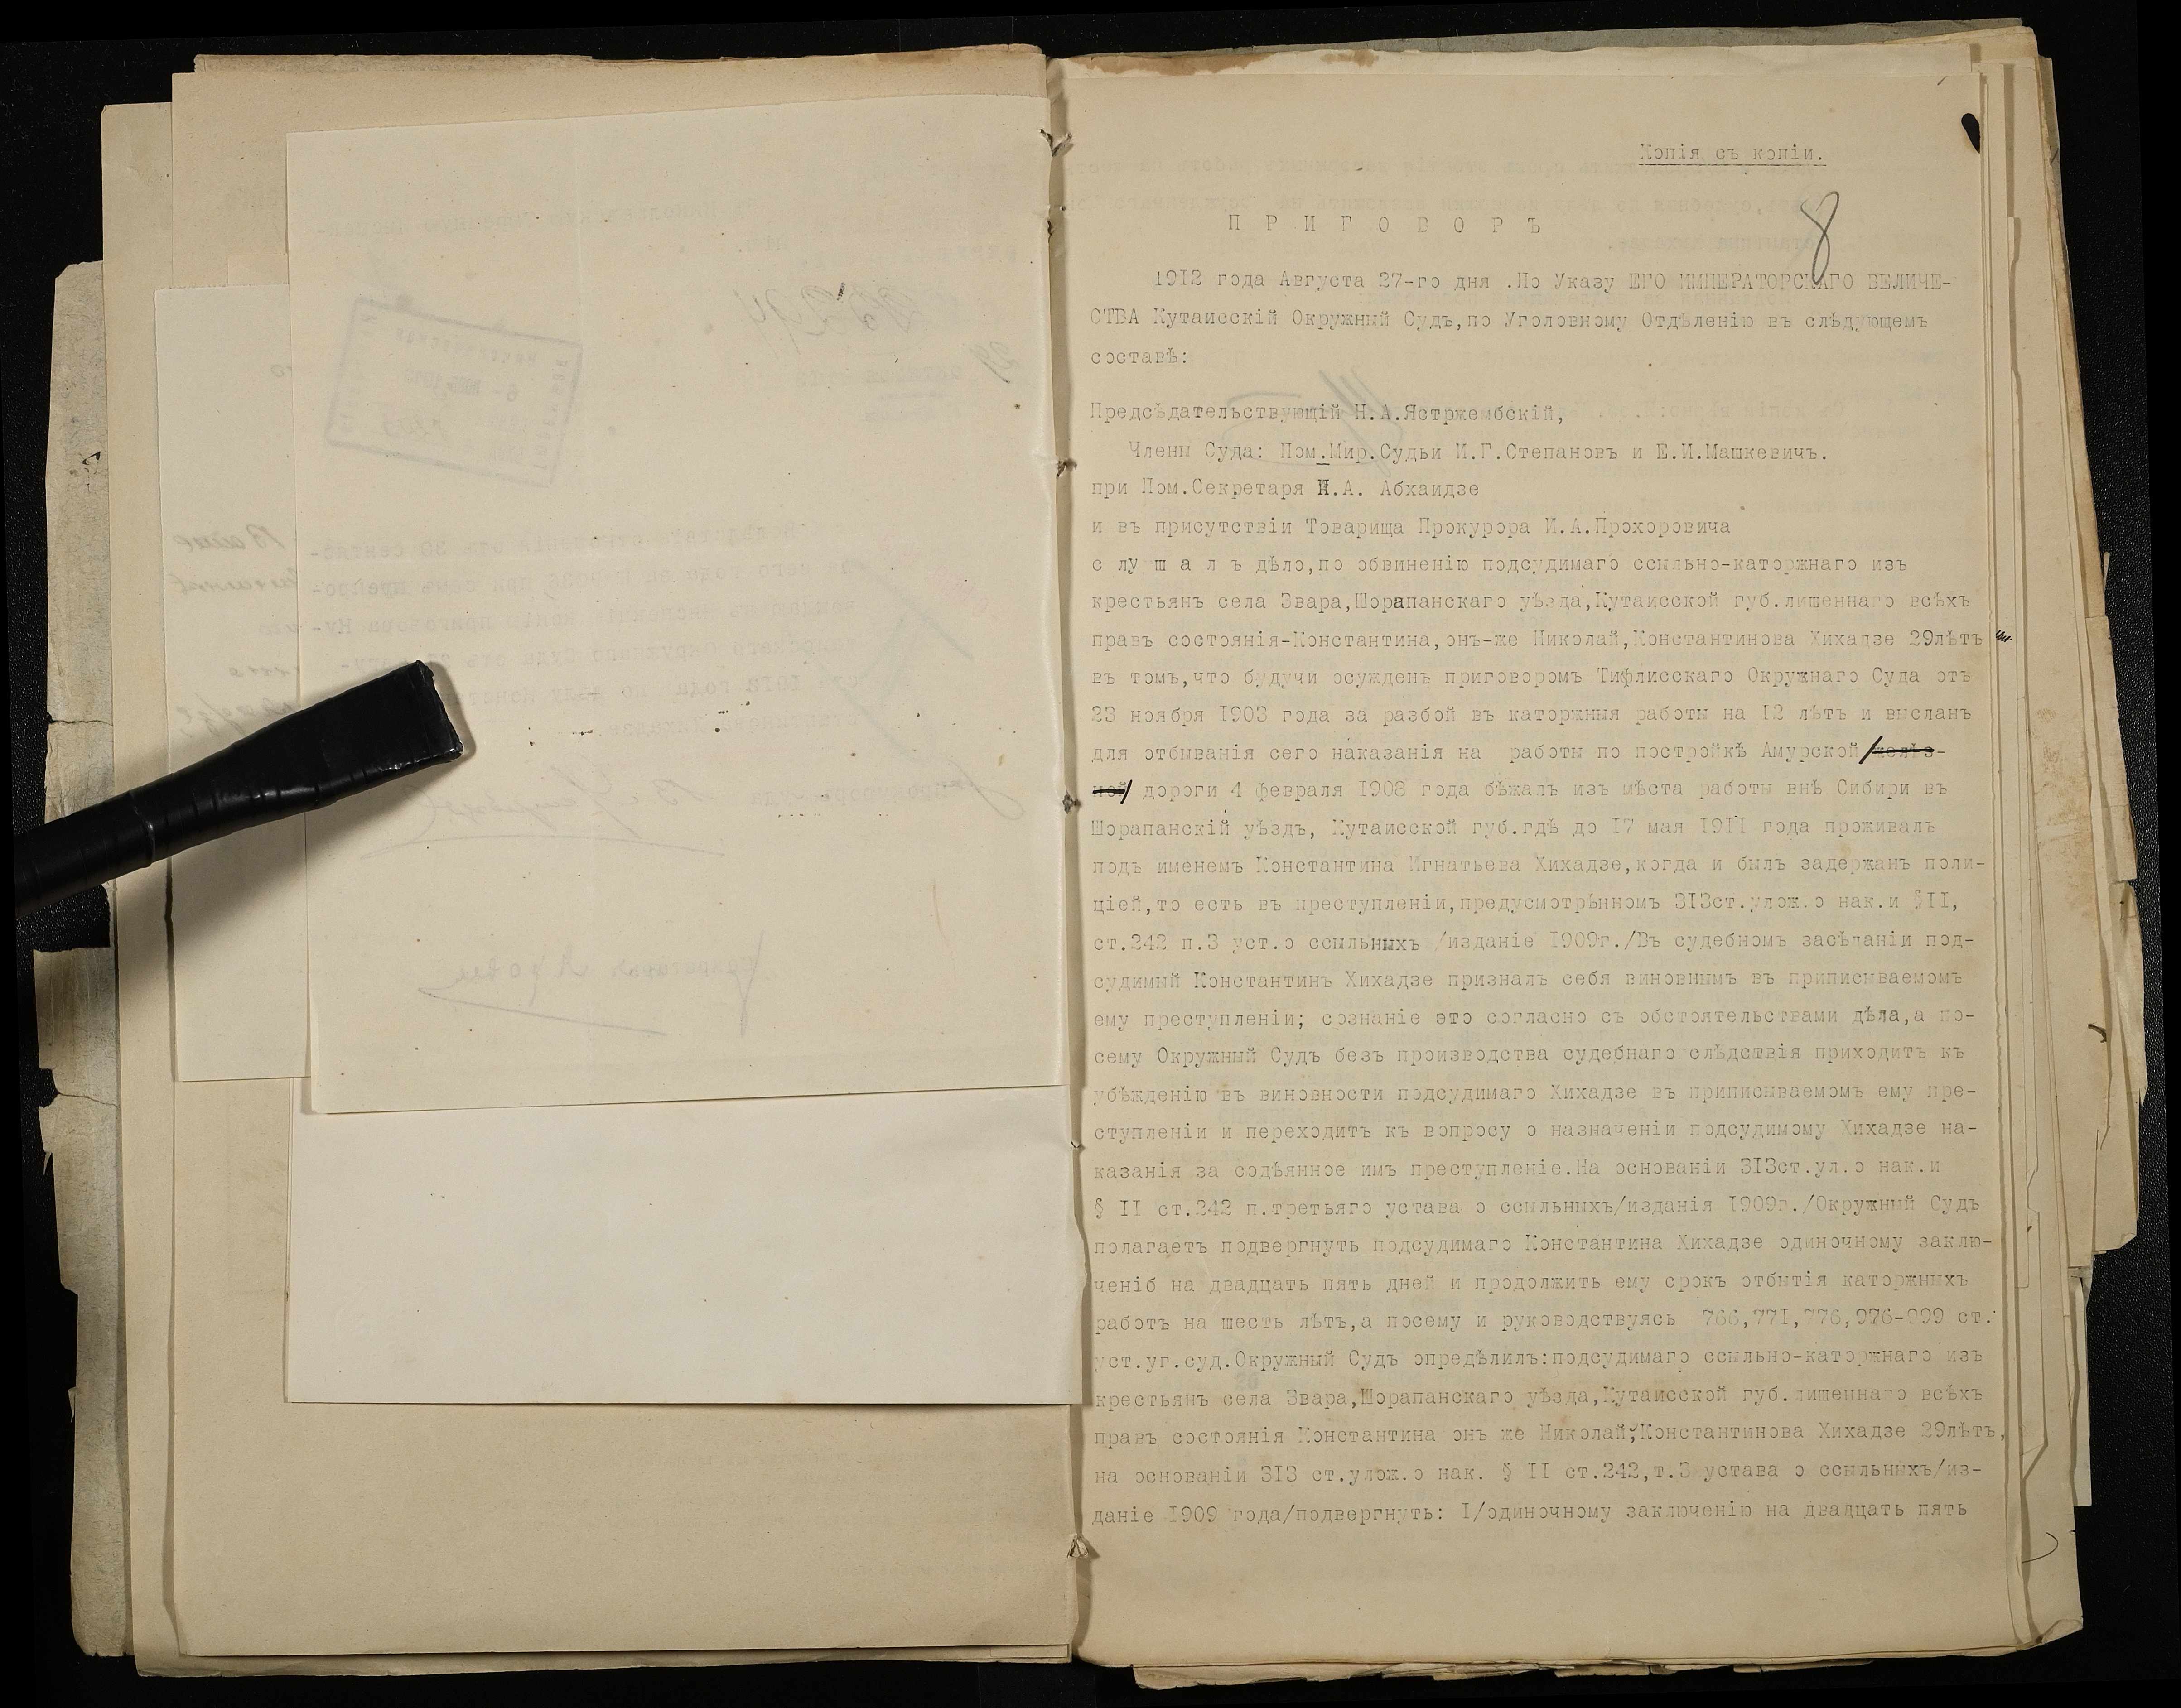 Копія съ копіи.
8
П Р И Г О В О Р Ъ
1912 года Августа 27-го дня .По Указу ЕГО ИМПЕРАТОРСКАГО ВЕЛИЧЕ-
СТВА Кутаисскій Окружный Судъ,по Уголовному Отдѣленію въ слѣдующемъ
составѣ:
Предсѣдательствующій Н.А.Ястржембскій,
Члены Суда: Пом.Мир.Судьи И.Г.Степановъ и Е.И.Машкевичъ.
при Пом.Секретаря Н.А. Абхаидзе
и въ присутствіи Товарища Прокурора И.А.Прохоровича
с лу ш а л ъ дѣло,по обвиненію подсудимаго ссыльно-каторжнаго изъ
крестьянъ села Звара,Шорапанскаго уѣзда,Кутаисской губ.лишеннаго всѣхъ
правъ состоянія-Константина,онъ-же Николай,Константинова Хихадзе 29лѣтъ
въ томъ,что будучи осужденъ приговоромъ Тифлисскаго Окружнаго Суда отъ
23 ноября 1903 года за разбой въ каторжныя работы на 12 лѣтъ и высланъ
для отбыванія сего наказанія на работы по постройкѣ Амурской /желѣз-
ной/ дороги 4 февраля 1908 года бѣжалъ изъ мѣста работы внѣ Сибири въ
Шорапанскій уѣздъ, Кутаисской губ.гдѣ до 17 мая 1911 года проживалъ
подъ именемъ Константина Игнатьева Хихадзе,когда и былъ задержанъ поли-
ціей,то есть въ преступленіи,предусмотрѣнномъ 313ст.улож.о нак.и §II,
ст.242 п.3 уст.о ссыльныхъ /изданіе 1909г./Въ судебномъ засѣданіи под-
судимый Константинъ Хихадзе призналъ себя виновнымъ въ приписываемомъ
ему преступленіи; сознаніе это согласно съ обстоятельствами дѣла,а по-
сему Окружный Судъ безъ производства судебнаго слѣдствія приходитъ къ
убѣжденію въ виновности подсудимаго Хихадзе въ приписываемомъ ему пре-
ступленіи и переходитъ къ вопросу о назначеніи подсудимому Хихадзе на-
казанія за содѣянное имъ преступленіе.На основаніи 313ст.ул.о нак.и
§ II ст.242 п.третьяго устава о ссыльныхъ/изданія 1909г./Окружный Судъ
полагаетъ подвергнуть подсудимаго Константина Хихадзе одиночному заклю-
ченіб на двадцать пять дней и продолжить ему срокъ отбытія каторжныхъ
работъ на шесть лѣтъ,а посему и руководствуясь 766,771,776,976-999 ст.
уст.уг.суд.Окружный Судъ опредѣлилъ:подсудимаго ссыльно-каторжнаго изъ
крестьянъ села Звара,Шорапанскаго уѣзда,Кутаисской губ.лишеннаго всѣхъ
правъ состоянія Константина онъ же Николай,Константинова Хихадзе 29лѣтъ,
на основаніи 313 ст.улож.о нак. § II ст.242,т.3 устава о ссыльныхъ/из-
даніе 1909 года/подвергнуть: I/одиночному заключенію на двадцать пять